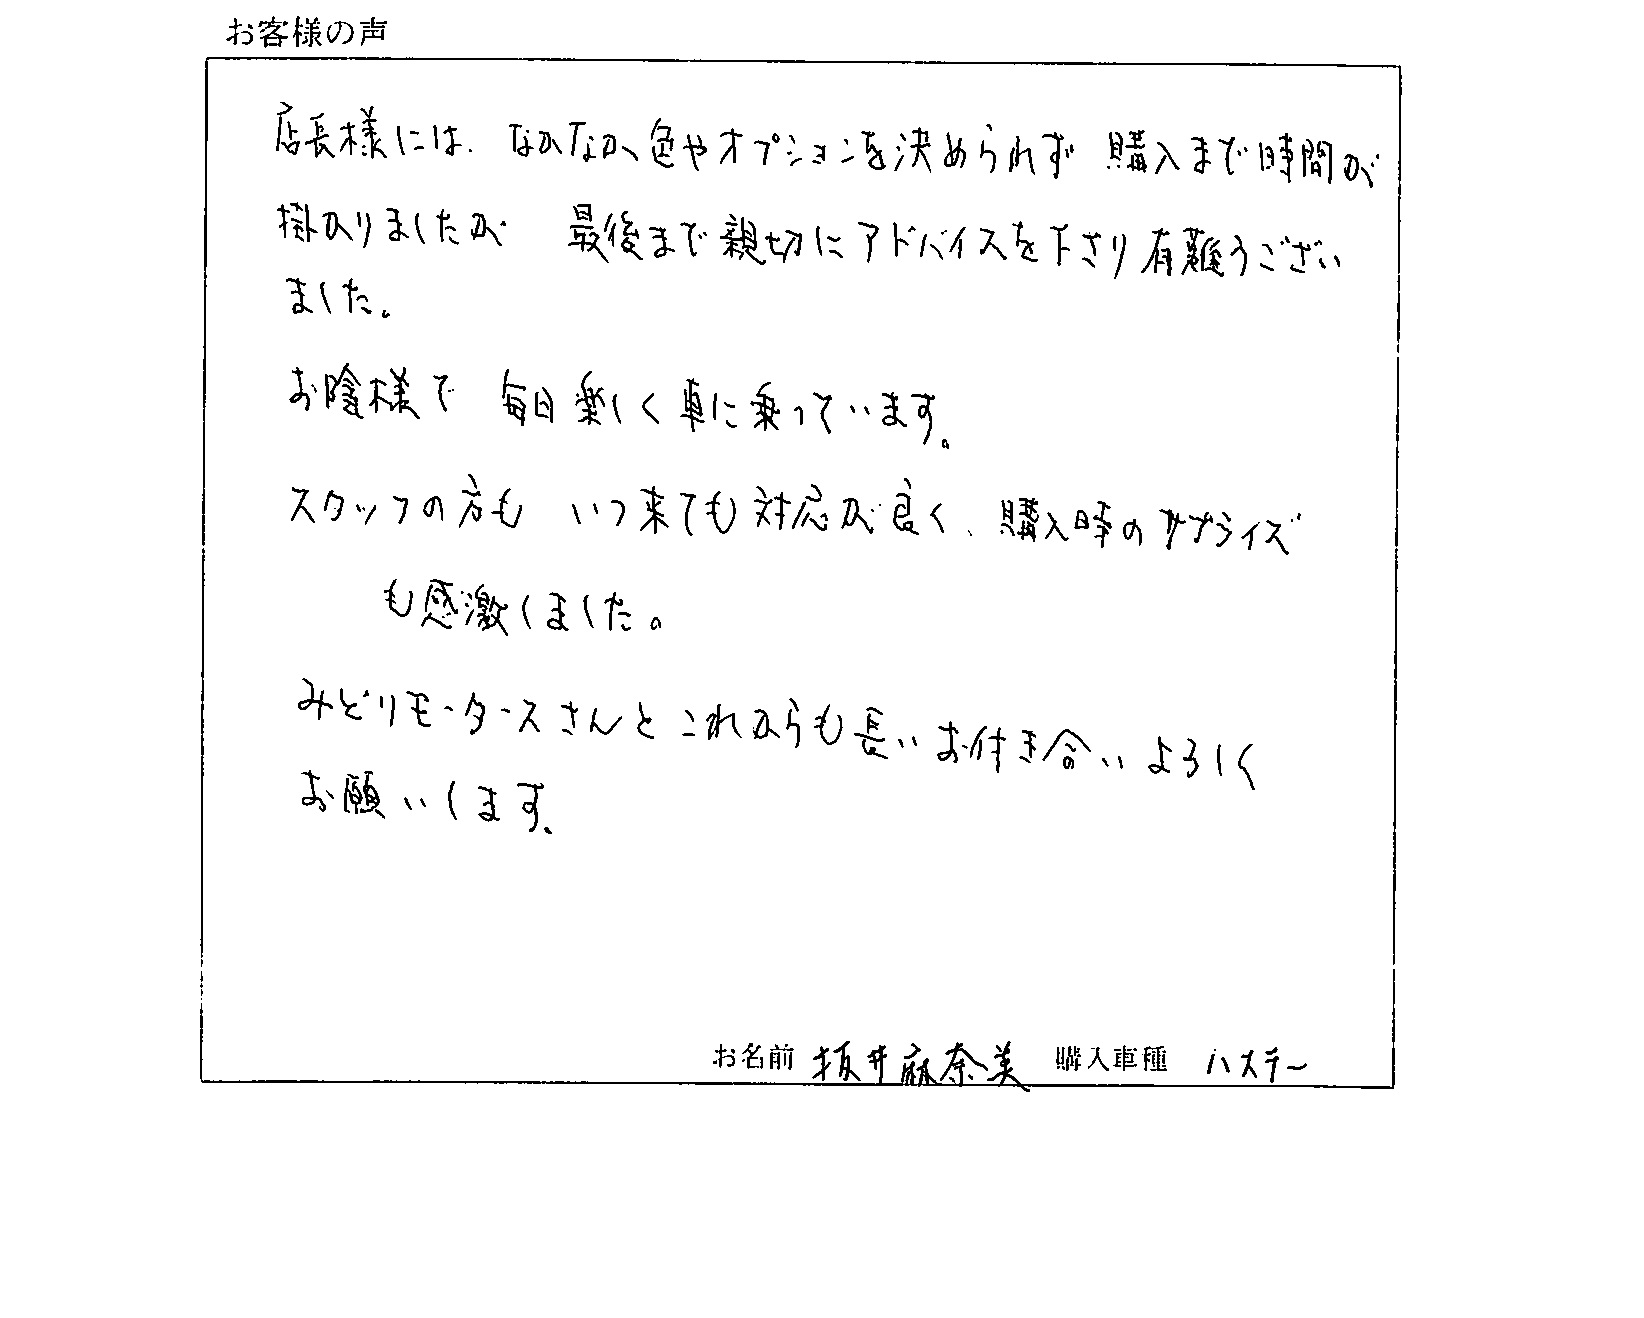 お客様の声
店長様には、なかなか色やオプションを決められず 購入まで時間が
掛かりましたが 最後まで親切にアドバイスを下さり有難うござい
ました。
お陰様で 毎日楽しく車に乗っています。
スタッフの方も いつ来ても対応が良く、購入時のサプライズ
も感激しました。
みどりモータースさんとこれからも長いお付き合いよろしく
お願いします。
お名前 坂井麻奈美 購入車種 ハスラー